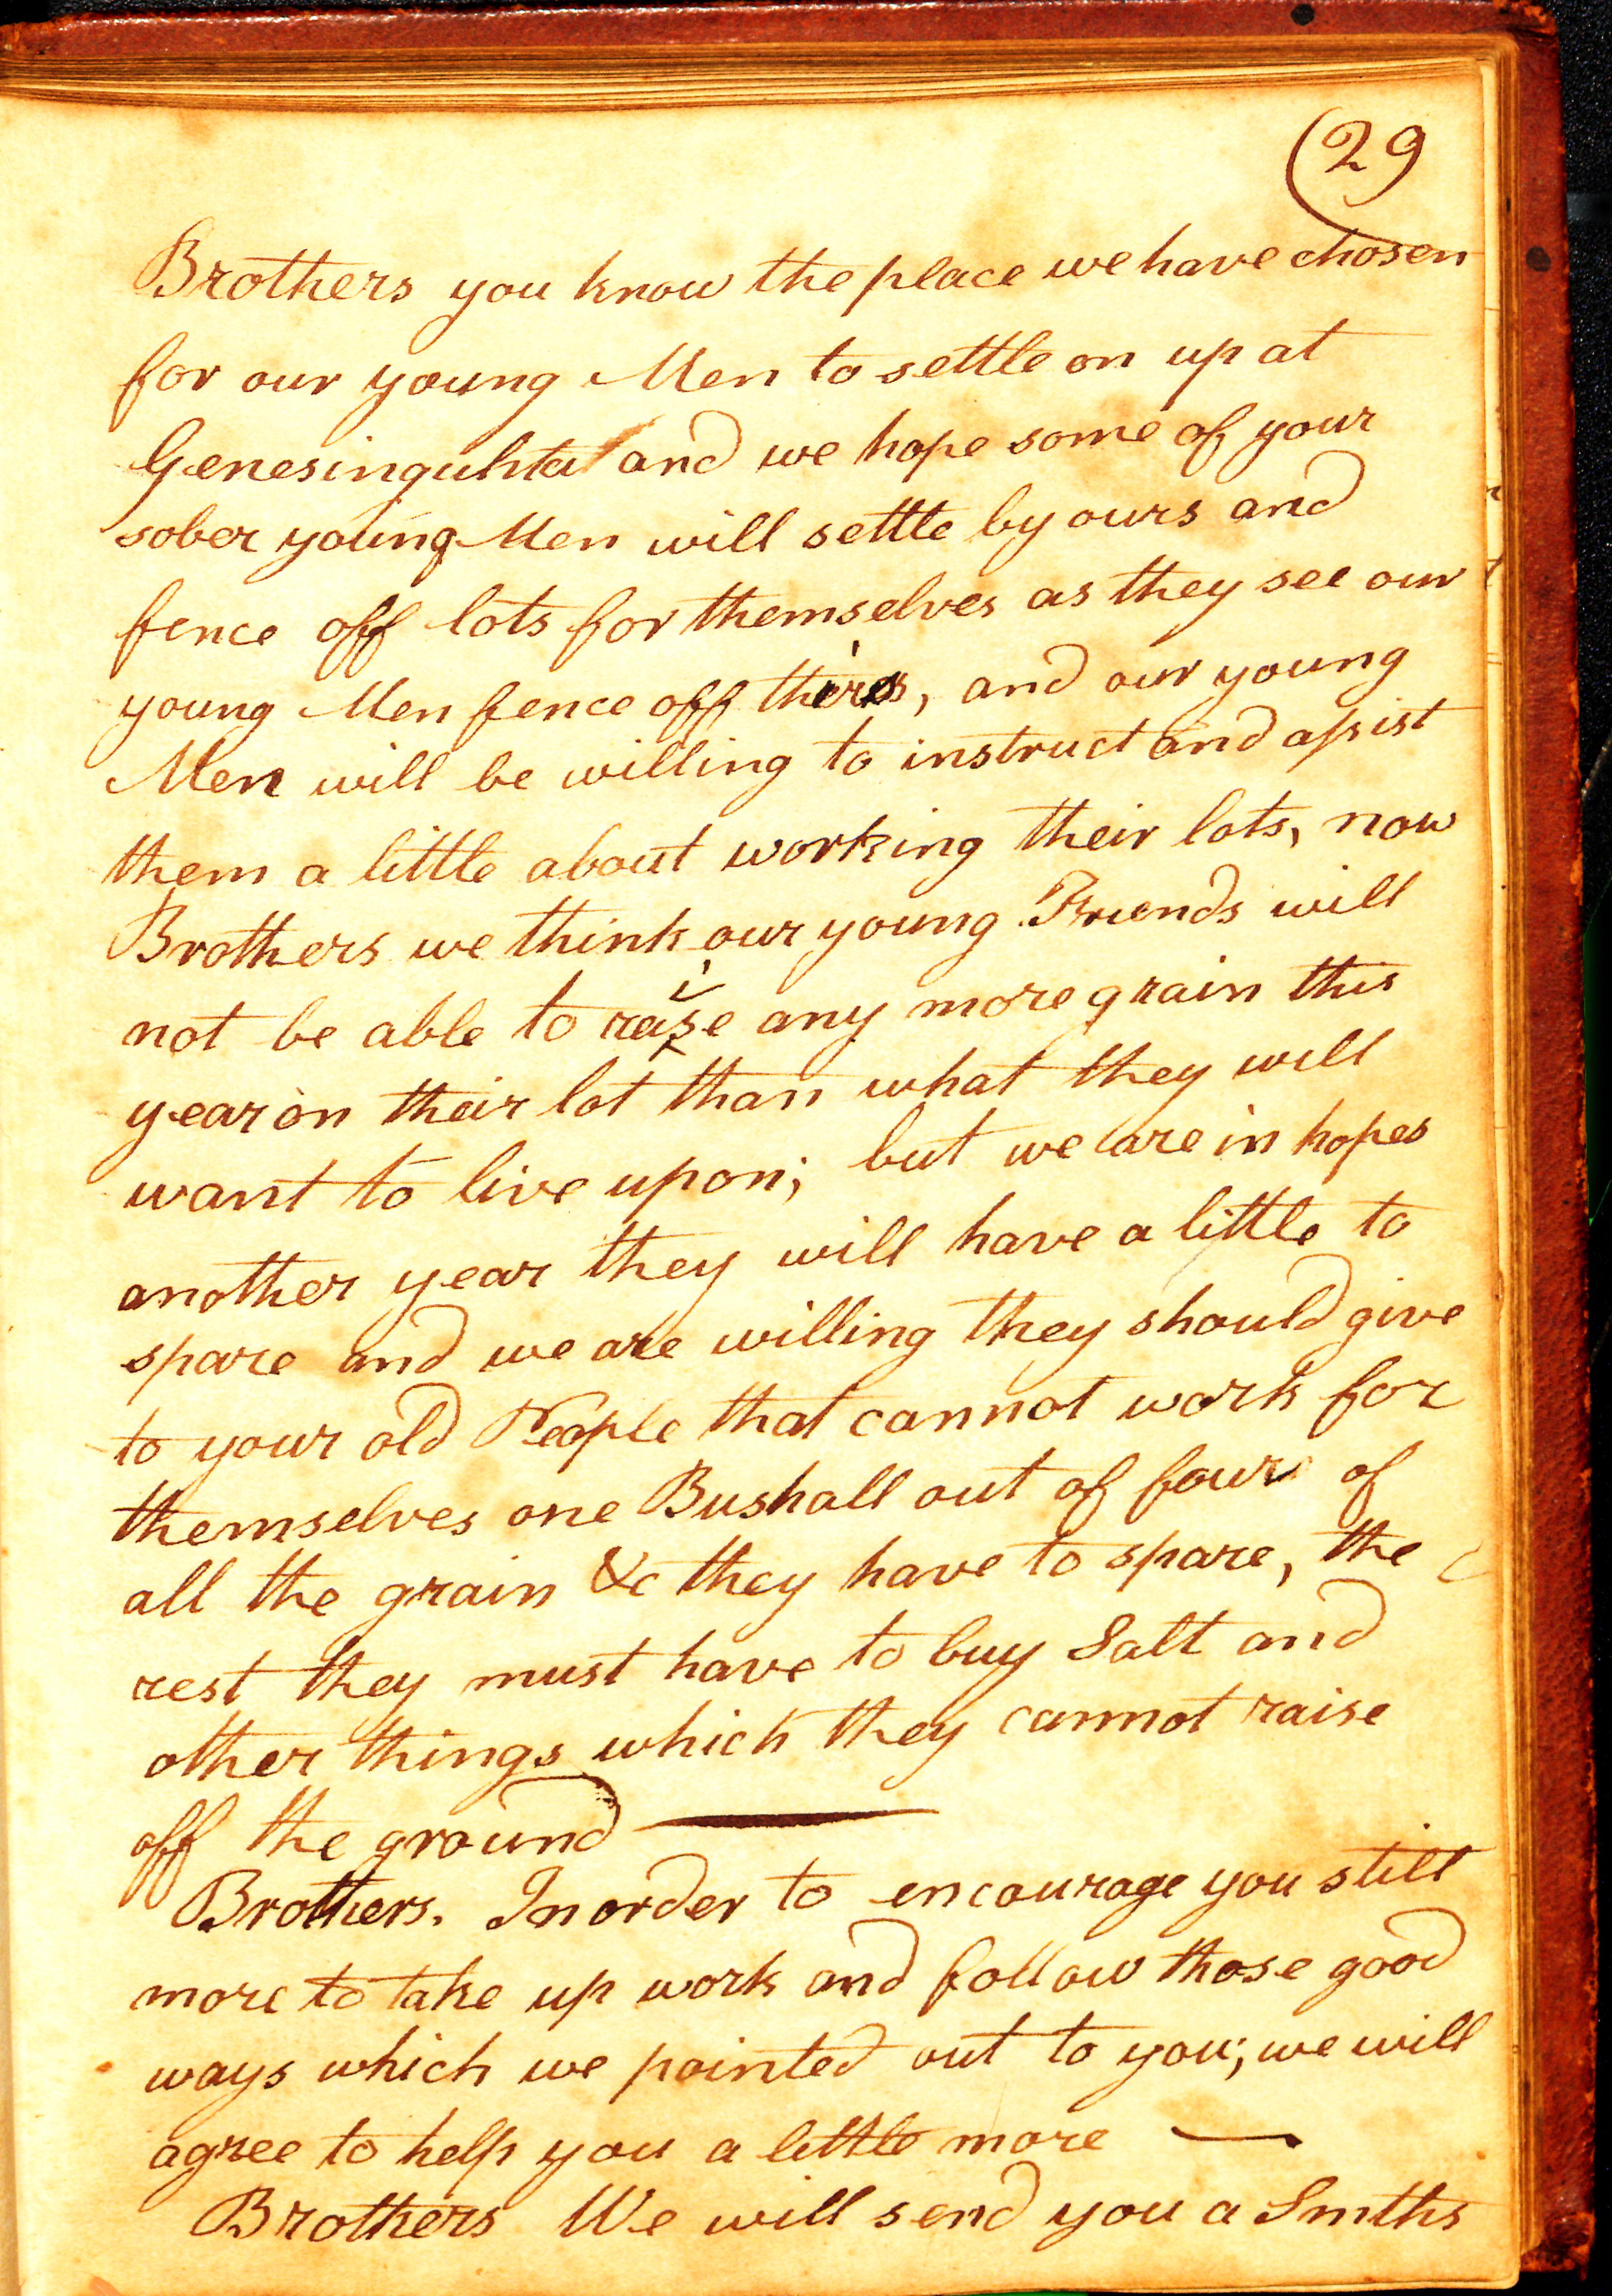 (29
Brothers you know the place we have chosen
for our young Men to settle on up at
Genesinguhta and we hope some of your
sober young Men will settle by ours and
fence off lots for themselves as they see our
young Men fence off theirs, and our young
Men will be willing to instruct and assist
them a little about working their lots, now
Brothers we think our young Friends will
not be able to raise any more grain this
year on their lot than what they will
want to live upon; but we are in hopes
another year they will have a little to
spare and we are willing they should give
to your old People that cannot work for
themselves one Bushall out of four of
all the grain &c they have to spare, the
rest they must have to buy Salt and
other things which they cannot raise
off the ground
Brothers. In order to encourage you still
more to take up work and follow those good
ways which we pointed out to you; we will
agree to help you a little more
Brothers We will send you a Smths